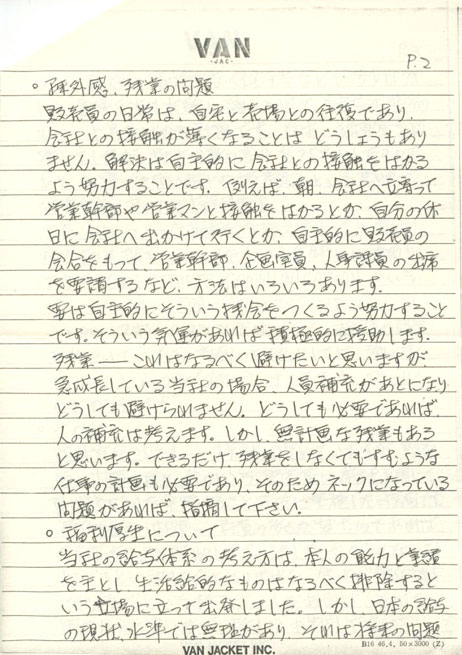 VAN
・JAC・
P.2
○ 疎外感、残業の問題
販売員の日常は、自宅と売場との往復であり、
会社との接触が薄くなることは どうしようもあり
ません。解決は自主的に 会社との接触をはかる
よう努力することです。例えば、朝、会社へ立寄って
営業幹部や営業マンと接触をはかるとか、自分の休
日に会社へ出かけて行くとか、自主的に販売員の
会合をもって、営業幹部、企画室員、人事課員の出席
を要請するなど、方法はいろいろあります。
要は自主的にそういう機会をつくるよう努力すること
です。そういう気運があれば積極的に援助します。
残業 ― これはなるべく避けたいと思いますが
急成長している当社の場合、人員補充があとになり
どうしても避けられません。どうしても必要であれば、
人の補充は考えます。しかし、無計画な残業もある
と思います。できるだけ、残業をしなくてもすむような
仕事の計画も必要であり、そのため ネックになっている
問題があれば、指摘して下さい。
○ 福利厚生について
当社の給与体系の考え方は、本人の能力と業績
を主とし 生活給的なものはなるべく排除すると
いう立場に立って出発しました。しかし、日本の給与
の現状、水準では無理があり、それは将来の問題
VAN JACKET INC.
B16 46.4, 50×2000 (Z)